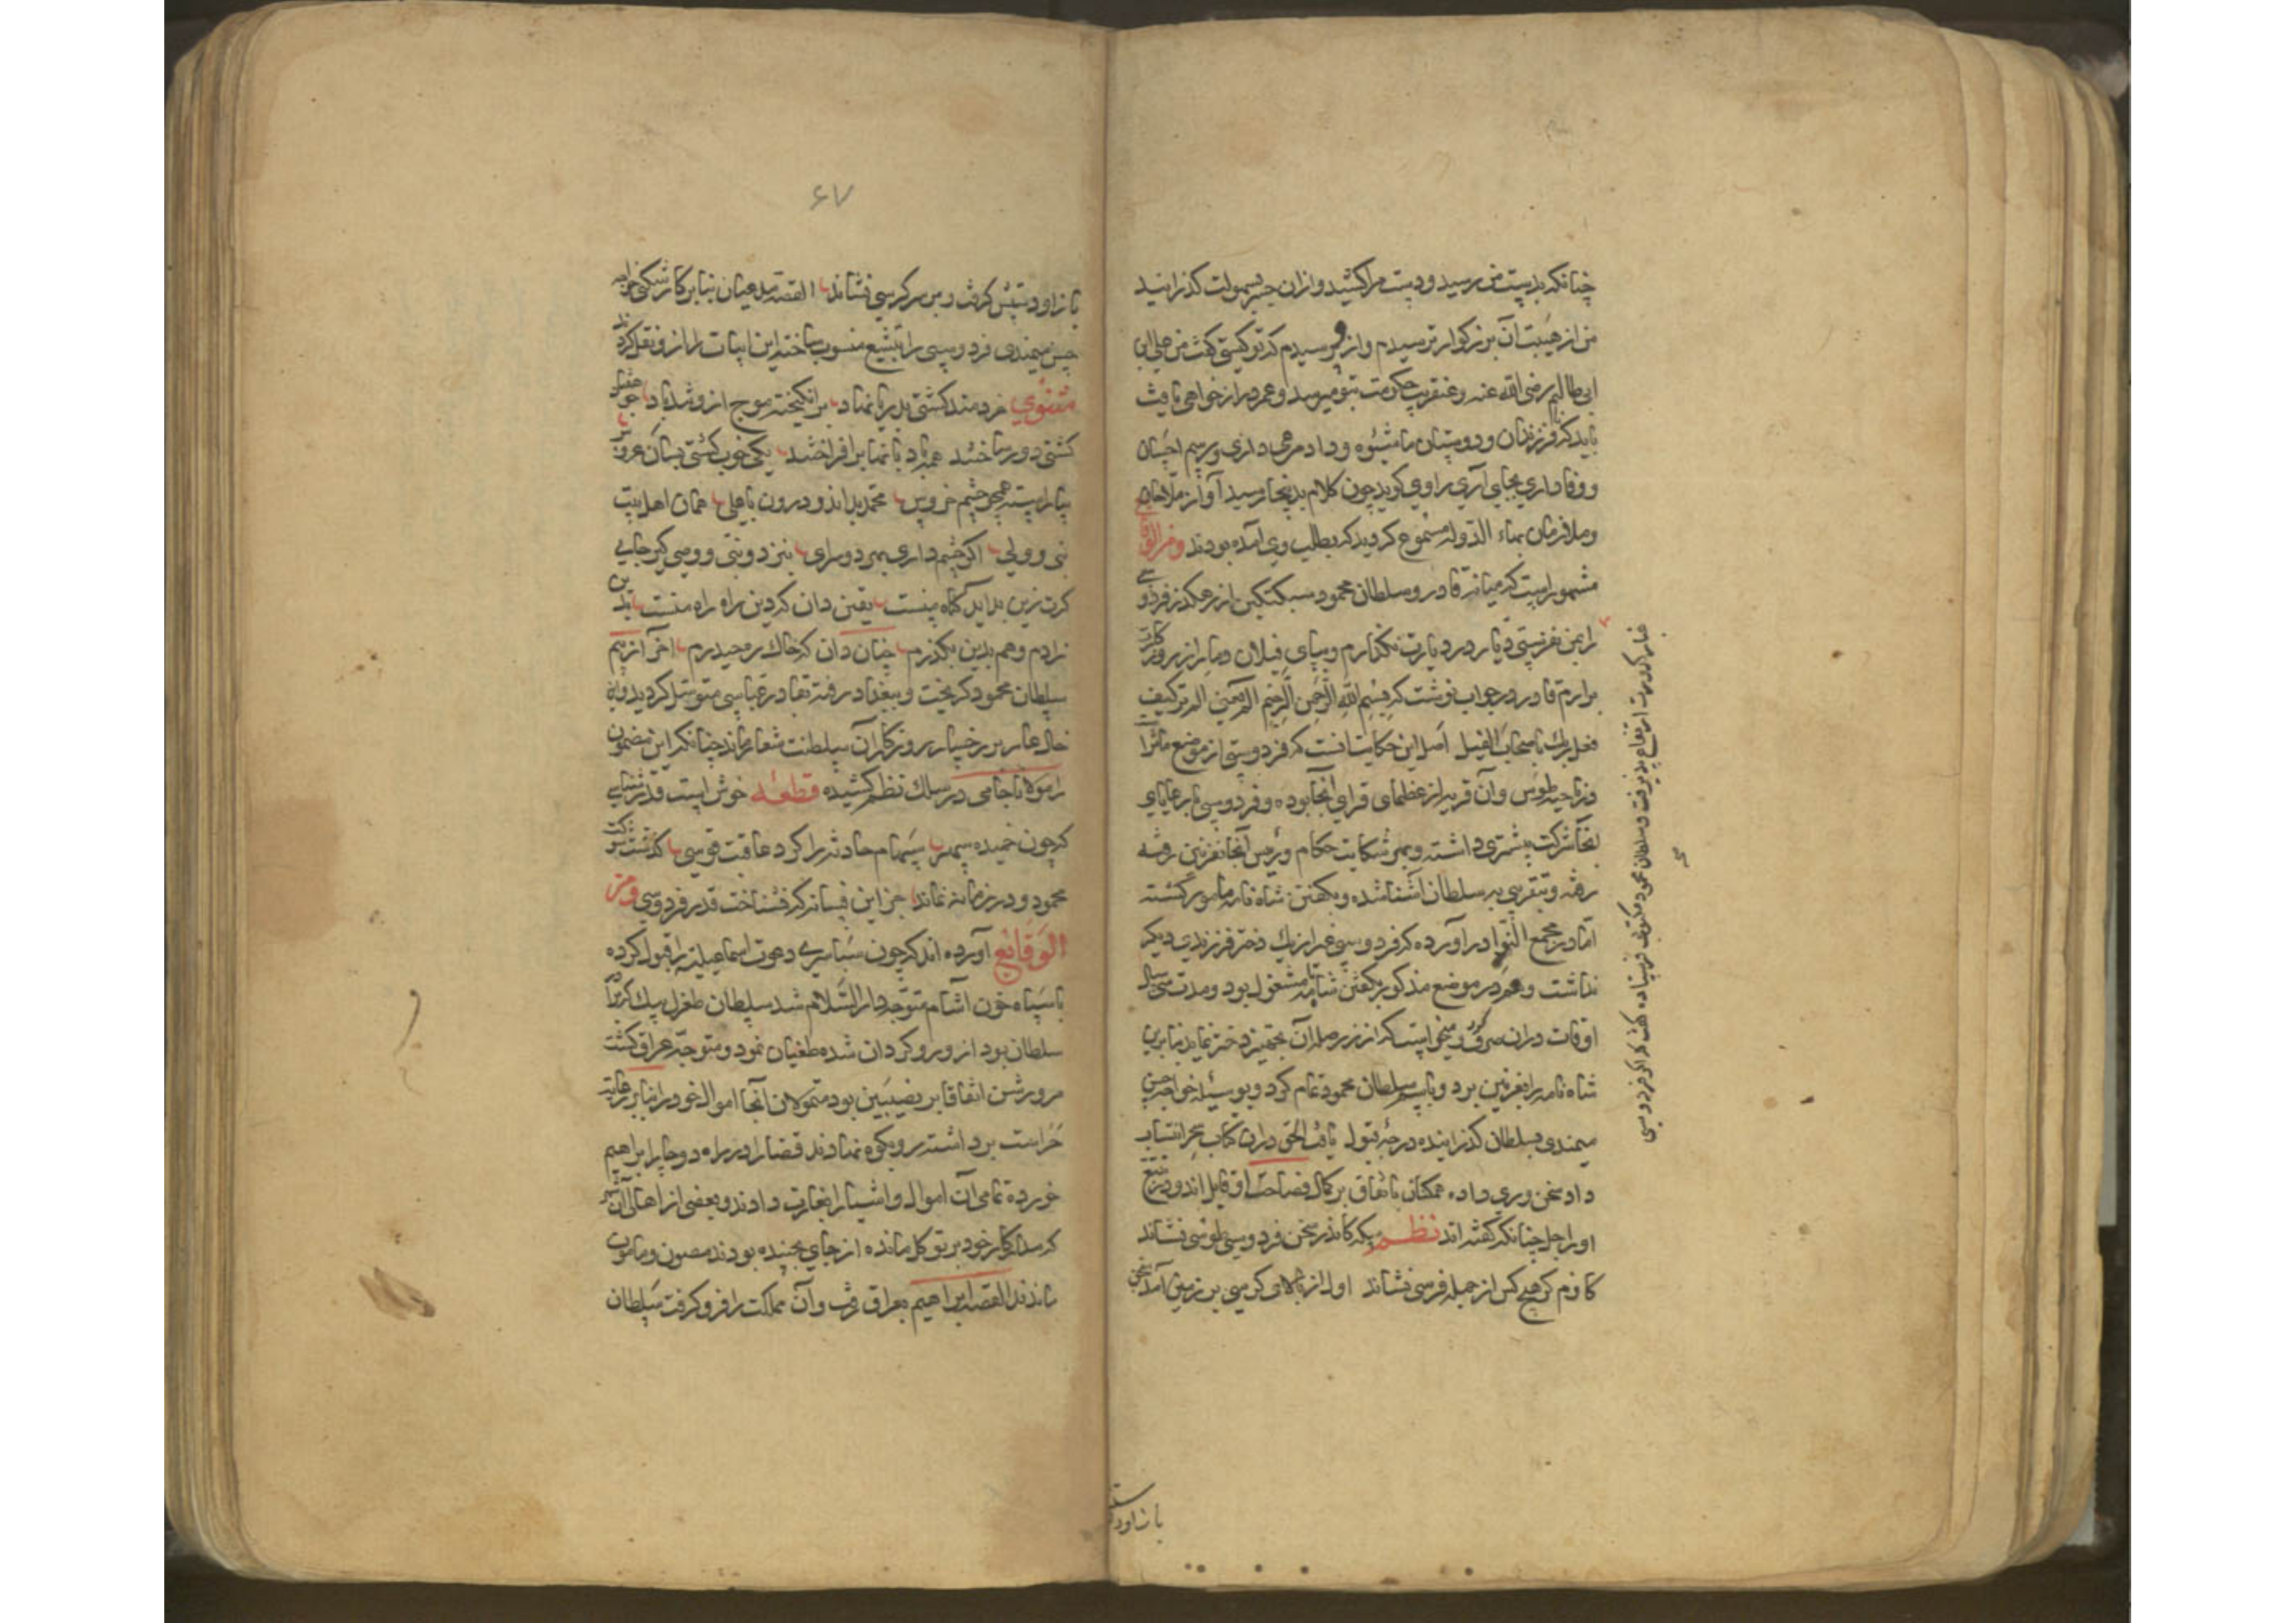 چنانکه بدست من رسید و دست مرا کشید و ازان جسر بسهولت کذرانید
من از هیبت آن بزرکوار ترسیدم و ازو پرسیدم که تو کیستی کفت من علی ابن
ابی طالبم رضی الله عنه و عنقریب حکومت بتو میرسد و عمر دراز خواهی یافت
باید که فرزندان و دوستان ما را مرعی داری و رسم احسان
و وفاداری بجای آری راوی کوید چون کلام بدینجا رسید آواز ملاحان
و ملازمان بهاء الدوله مسموع کردید که بطلب وی آمده بودند ومن الوقایع
مشهور است که میانه قادر و سلطان محمود سبکتکین از رهکذر فردوسی
را بمن نفرستی دیار در دیارت نکذارم و بپای فیلان دمار از روزکارت
برارم قادر در جواب نوشت که بسم الله الرحمن الرحیم الم یعنی الم تر کیف
فعل ربک باصحاب الفیل اصل این حکایت انست که فردوسی از موضع
ناحیه طوس و آن قریه از عظمای قرای آنجا بوده و فردوسی با رعایای
آنجا شرکت داشته و بهر شکایت حکام و رئیس آنجا بغزنین رفته
رفته و بتقریبی به سلطان آشنا شده و بکفتن شاه نامه مامور کشته
اما در مجمع النوادر آورده که فردوسی غیر از یک دختر فرزندی دیکر
نداشت و هم در موضع مذکور بکفتن شاه نامه مشغول بود و مدت سی سال
اوقات دران صرف کرد و میخواست که از زر صله آن تجهیز دختر نماید بنابرین
شاه نامه را بغزنین برد و باسم سلطان محمود تمام کرد و بوسیله خواجه حسن
میمندی بسلطان کذرانیده درجه قبول یافت الحق دران کتاب انتساب
داد سخن وری داده همکنان باتفاق بر کمال فصاحت او قایل اند و
او را جل چنانکه کفته اند نظم سکه کاندر سخن فردوسی طوسی نشاند
کافرم کر هیچ کس از جمله فرسی نشاند اول از بالای کرسی بر زمین آمد سخن
غبار کدورت ارتفاع پذیرفت و سلطان محمود مکتوب فرستاده کفت که اکر فردوسی
باز او دست
۶۷
باز او دستش کرفت و بر سر کرسی نشاند القصه مدعیان بنابر کارشکنی خواجه
حسن میمندی فردوسی را بتشیع منسوب ساخته این ابیات را از و نقل کردند
مثنوی خردمند کشتی بدریا نهاد برانکیخته موج ازو تندباد چو هفتاد
کشتی درو ساخته همه بادبانها برافراخته یکی خوب کشتی بسان عروس
بیاراسته همچو چشم خروس محمد بدو اندرون با علی همان اهل بیت
نبی و ولی اکر چشم داری بدیکر سرای بنزد نبی و وصی کیر جای
کرت زین بد آید کناه منست یقین دان که این راه راه منست بدین
زادم و هم بدین بکذرم چنان دان که خاک ره حیدرم آخر از بیم
سلطان محمود کریخت و ببغداد رفته بقادر عباسی متوسل کردید و این
خال عار بر رخسار روزکار آن سلطنت شعار بماند چنانکه این مضمون
را مولانا جامی در سلک نظم کشیده قطعه خوش است قدر شناسی
که چون خمیده سپهر سهام حادثه را کرد عاقبت قوسی کذشت شوکت
محمود و در زمانه نماند جز این فسانه که نشناخت قدر فردوسی ومن
الوقایع آورده اند که چون بساسیری دعوت اسماعیلیه را قبول کرده
با سپاه خون آشام متوجه دار السلام شد سلطان طغرل بیک که برادر
سلطان بود ازو روکردان شده طغیان نمود و متوجه عراق کشت
مرورش اتفاقا بر نصیبین بود متمولان آنجا اموال خود را بنابر رعایت
حراست برداشته رو بکوه نهادند قضا را در راه دوچار ابراهیم
خورده تمامی آن اموال و اشیا را بغارت دادند و بعضی از اهالی آن شهر
که مدار کار خود بر توکل مانده از جای نجنبیده بودند مصون و مامون
ماندند القصه ابراهیم بعراق رفت و آن مملکت را فرو کرفت سلطان